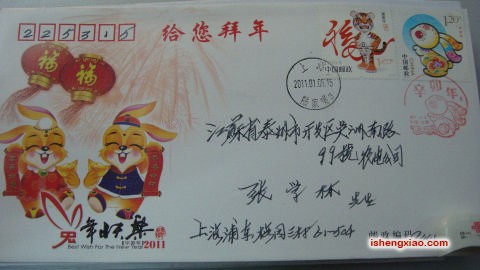 225315
给您拜年
1.20元
中国邮政
1.20元
中国邮政
上海
2011.01.05.15
辛卯年
福
福
江苏省泰州市开发区吴洲南路
99號
公司
张学林 先生
兔年快乐
【辛卯年】2011
Best Wish For The New Year
上海浦东
61-504
邮政编码
ishengxiao.com